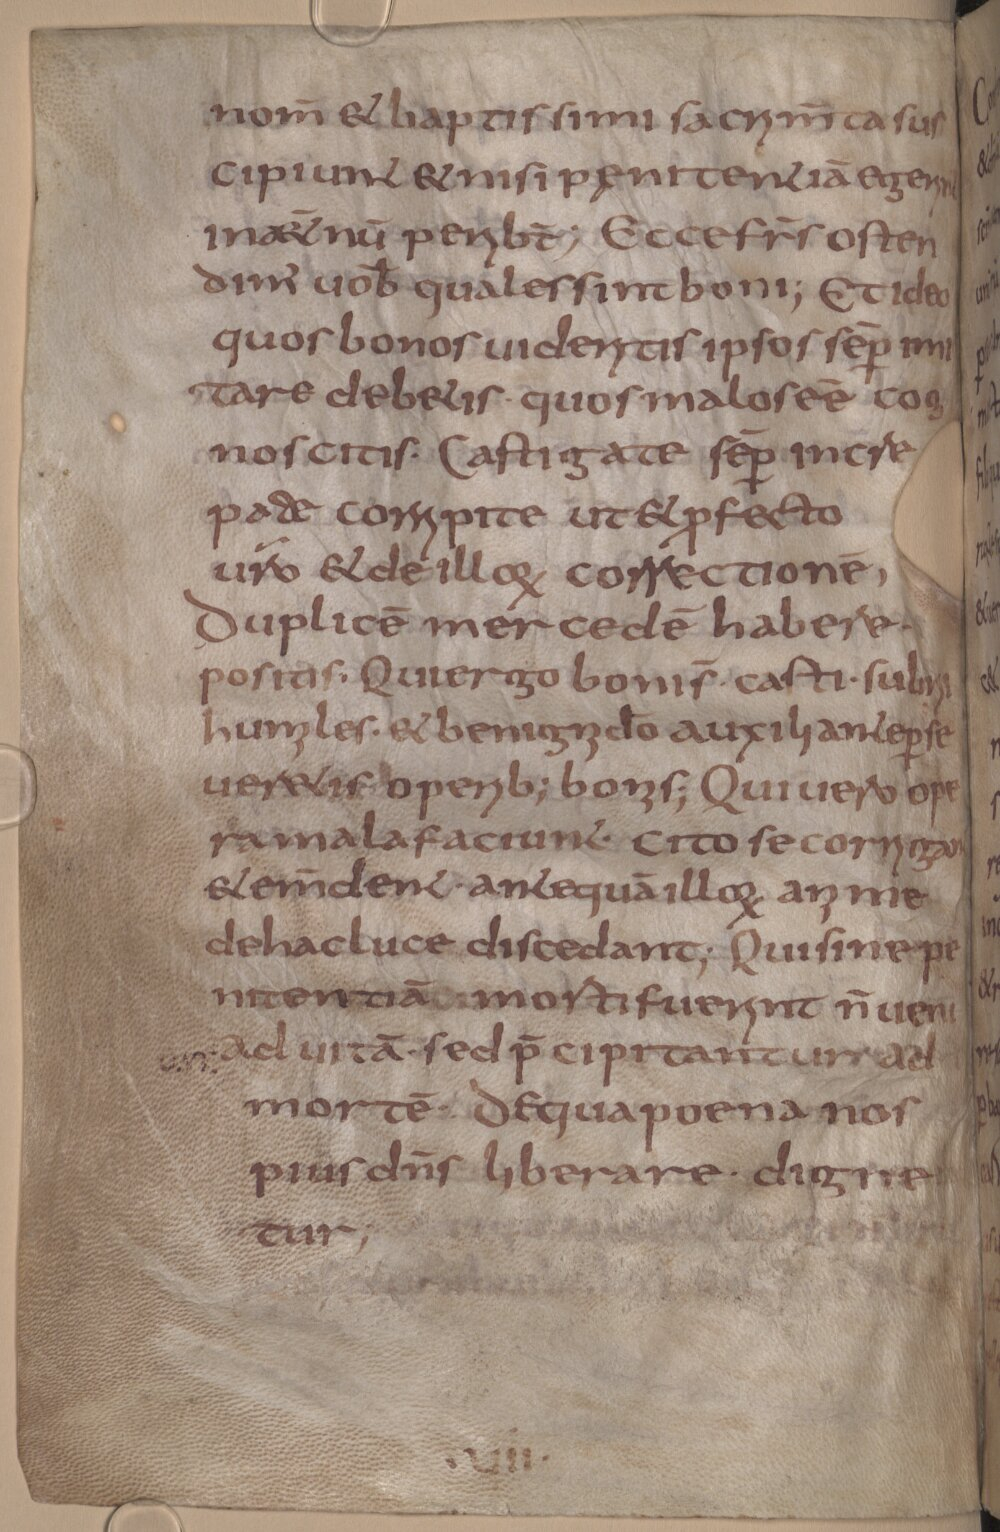 nom̄ & baptissimi sacrim̄ta sus
cipiunt & nisi penitentiā egerint
in æt̄nū peribt̄; Ecce fr̄s osten
dim̄ uob̄ quales sint boni; Et ideo
quos bonos uidentis ipsos sēp̄ imi
tare debetis· quos malos eē cog
noscitis· Castigate sēp̄ incre
pate corripite ut & p̄fecto
ur̄o & de illoꝝ correctionē,
Duplicē mercedē habere·
positis· Qui ergo bonis̄· casti· subrii
humiles· & benigni do auxiliante pse
ueretis operib; bonis; Qui uero ope
ra mala faciunt· cito se corrigan
& em̄dent· antequā illoꝝ anime
de hac luce discedant; Qui sine pe
nitentiā morti fuerint n̄ ueni
ad uitā· sed p̄cipitantur ad
mortē· De qua poena nos
pius dn̄s liberare· digne
tur;
·VIII·